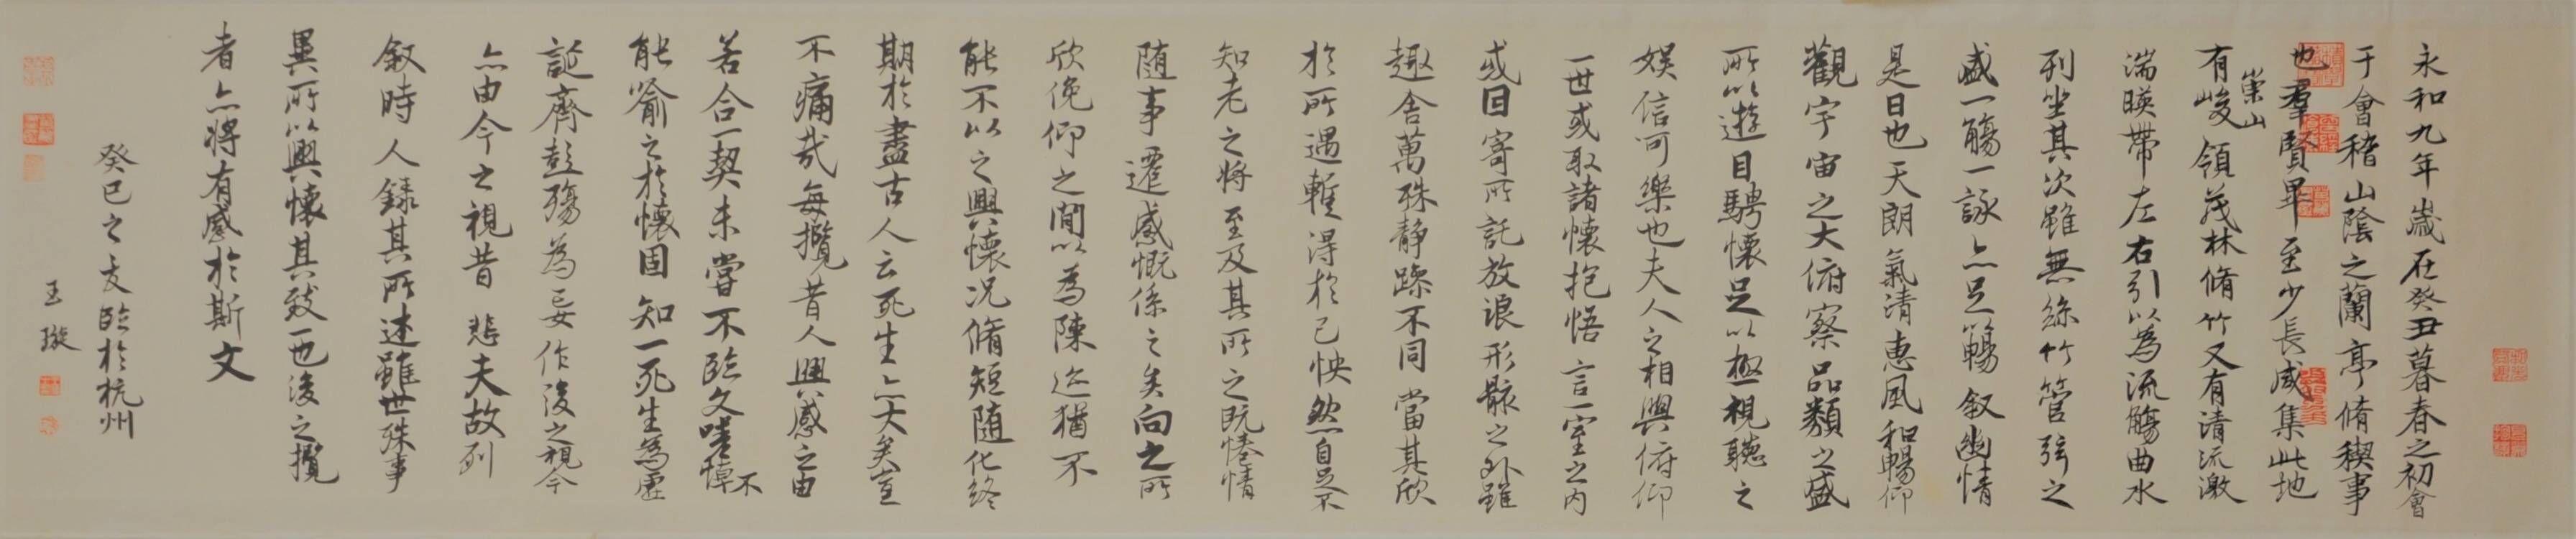 永和九年歲在癸丑暮春之初會
于會稽山陰之蘭亭脩稧事
也羣賢畢至少長咸集此地
有崇山峻領茂林脩竹又有清流激
湍暎帶左右引以為流觴曲水
列坐其次雖無絲竹管弦之
盛一觴一詠亦足以暢敘幽情
是日也天朗氣清惠風和暢仰
觀宇宙之大俯察品類之盛
所以遊目騁懷足以極視聽之
娛信可樂也夫人之相與俯仰
一世或取諸懷抱悟言一室之内
或因寄所託放浪形骸之外雖
趣舍萬殊靜躁不同當其欣
於所遇蹔得於己怏然自足不
知老之將至及其所之既惓情
随事遷感慨係之矣向之所
欣俛仰之閒以為陳迹猶不
能不以之興懷況脩短随化終
期於盡古人云死生亦大矣豈
不痛哉每攬昔人興感之由
若合一契未嘗不臨文嗟悼不
能喻之於懷固知一死生為虛
誕齊彭殤為妄作後之視今
亦由今之視昔悲夫故列
敘時人錄其所述雖世殊事
異所以興懷其致一也後之攬
者亦將有感於斯文
癸巳之夏臨於杭州
王璇